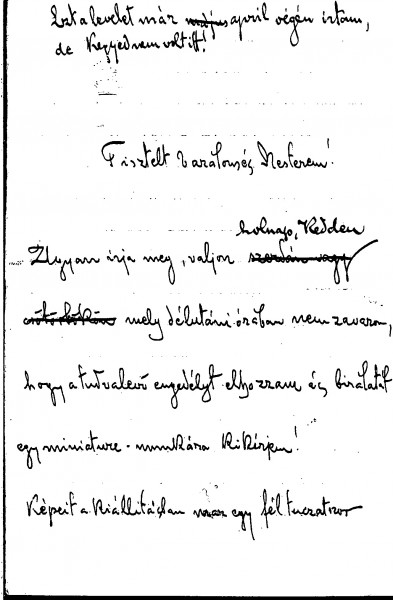 Ezt a levelet már május april végén írtam,
de Kegyed nem volt itt!
Tisztelt Mesterem!
holnap, Kedden
Ugyan írja meg, valjon szerdán vagy
mely délutáni órában nem zavarom,
hogy a tudvalevő engedélyt elhozzam és birálatát
egy miniature-munkára kikérjem!
Képeit a kiállitásban már egy fél tuczatszor